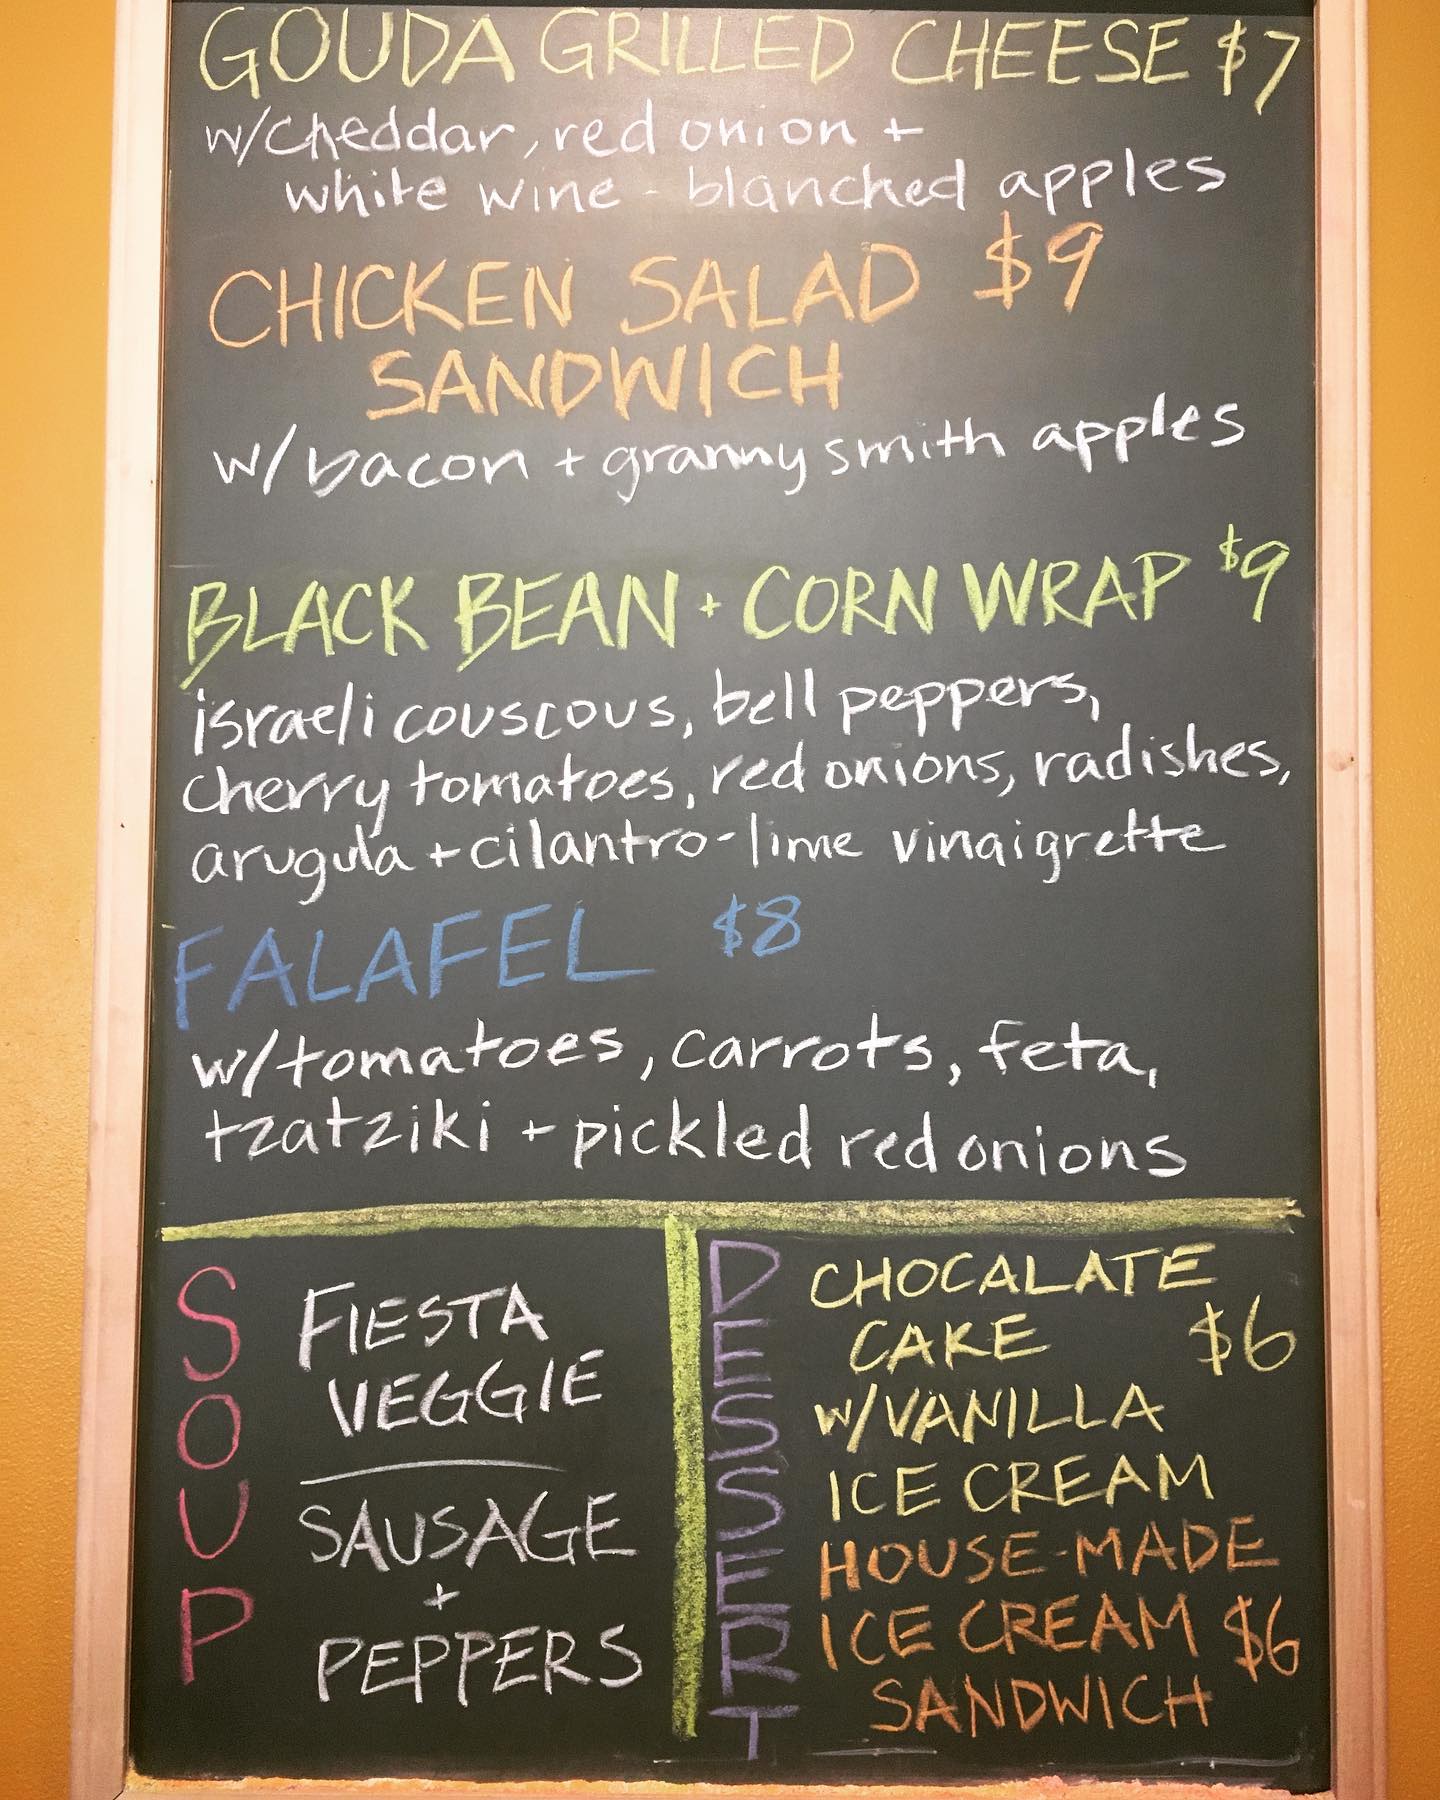 GOUDA GRILLED CHEESE $7
w/cheddar, red onion +
white wine - blanched apples
CHICKEN SALAD $9
SANDWICH
w/bacon + granny smith apples
BLACK BEAN + CORN WRAP $9
israeli couscous, bell peppers,
cherry tomatoes, red onions, radishes,
arugula + cilantro-lime vinaigrette
FALAFEL $8
w/tomatoes, carrots, feta,
tzatziki + pickled red onions
SOUP
FIESTA
VEGGIE
SAUSAGE
+
PEPPERS
DESSERT
CHOCALATE
CAKE $6
w/VANILLA
ICE CREAM
HOUSE-MADE
ICE CREAM $6
SANDWICH